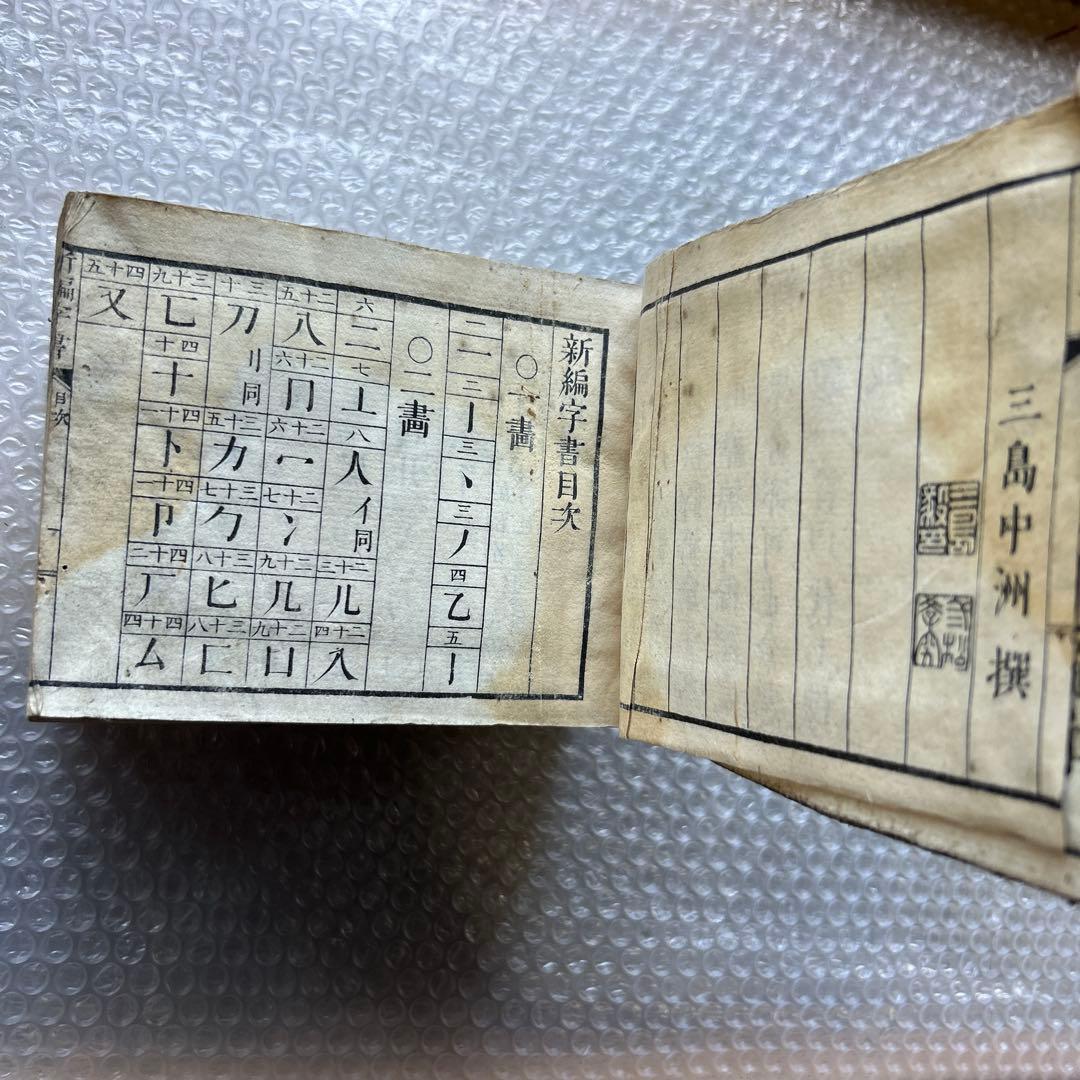 三島中洲 撰
三島毅印
新編字書目次
〇一畫
二 一 二 丨 三 丶 三 丿 四 乙 五 亅
〇二畫
六 二 七 亠 八 人 亻同 二十三 儿 二十四 入
二十五 八 二十六 冂 二十六 冖 二十七 冫 二十九 几 二十九 凵
三十 刀 刂同 三十五 力 三十七 勹 三十八 匕 三十八 匚
三十九 匸 四十 十 四十一 卜 四十一 卩 四十二 厂 四十四 厶
四十五 又
新編字書 目次